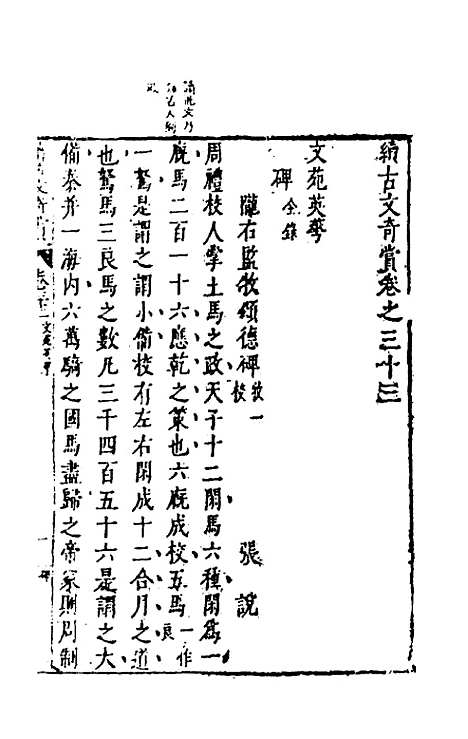 續古文奇賞卷之三十三
文苑英華
碑全錄
隴右監牧頌德碑 牧一校
張說
周禮校人掌土馬之政天子十二閑馬六種閑爲一
廐馬二百一十六應乾之策也六廐成校五馬一作良
一駑是謂之謂小備校有左右閑成十二合月之道
也駑馬三良馬之數凡三千四百五十六是謂之大
備秦并一海內六萬騎之國馬盡歸之帝家則周制